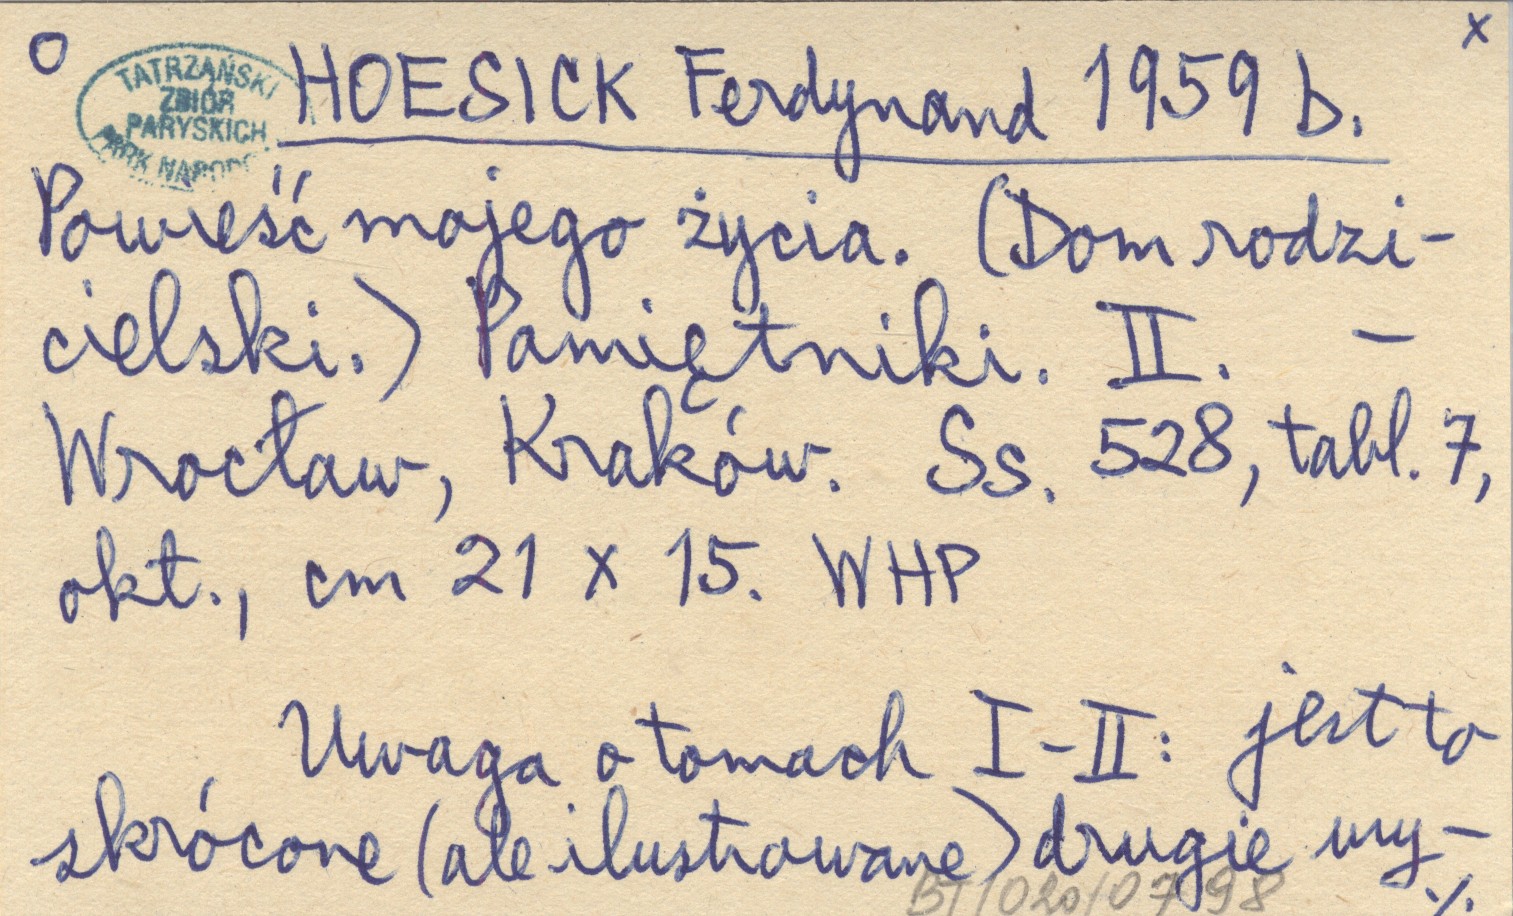 O x
TATRZAŃSKI
ZBIÓR
PARYSKICH
PARK NARODO
HOESICK Ferdynand 1959 b.
Powieść mojego życia. (Dom rodzi-
cielski.) Pamiętniki. II. –
Wrocław, Kraków. Ss. 528, tabl. 7,
okt., cm 21 x 15. WHP
Uwaga o tomach I-II: jest to
skrócone (ale ilustrowane) drugie wy-
BT/020/0798 ./.